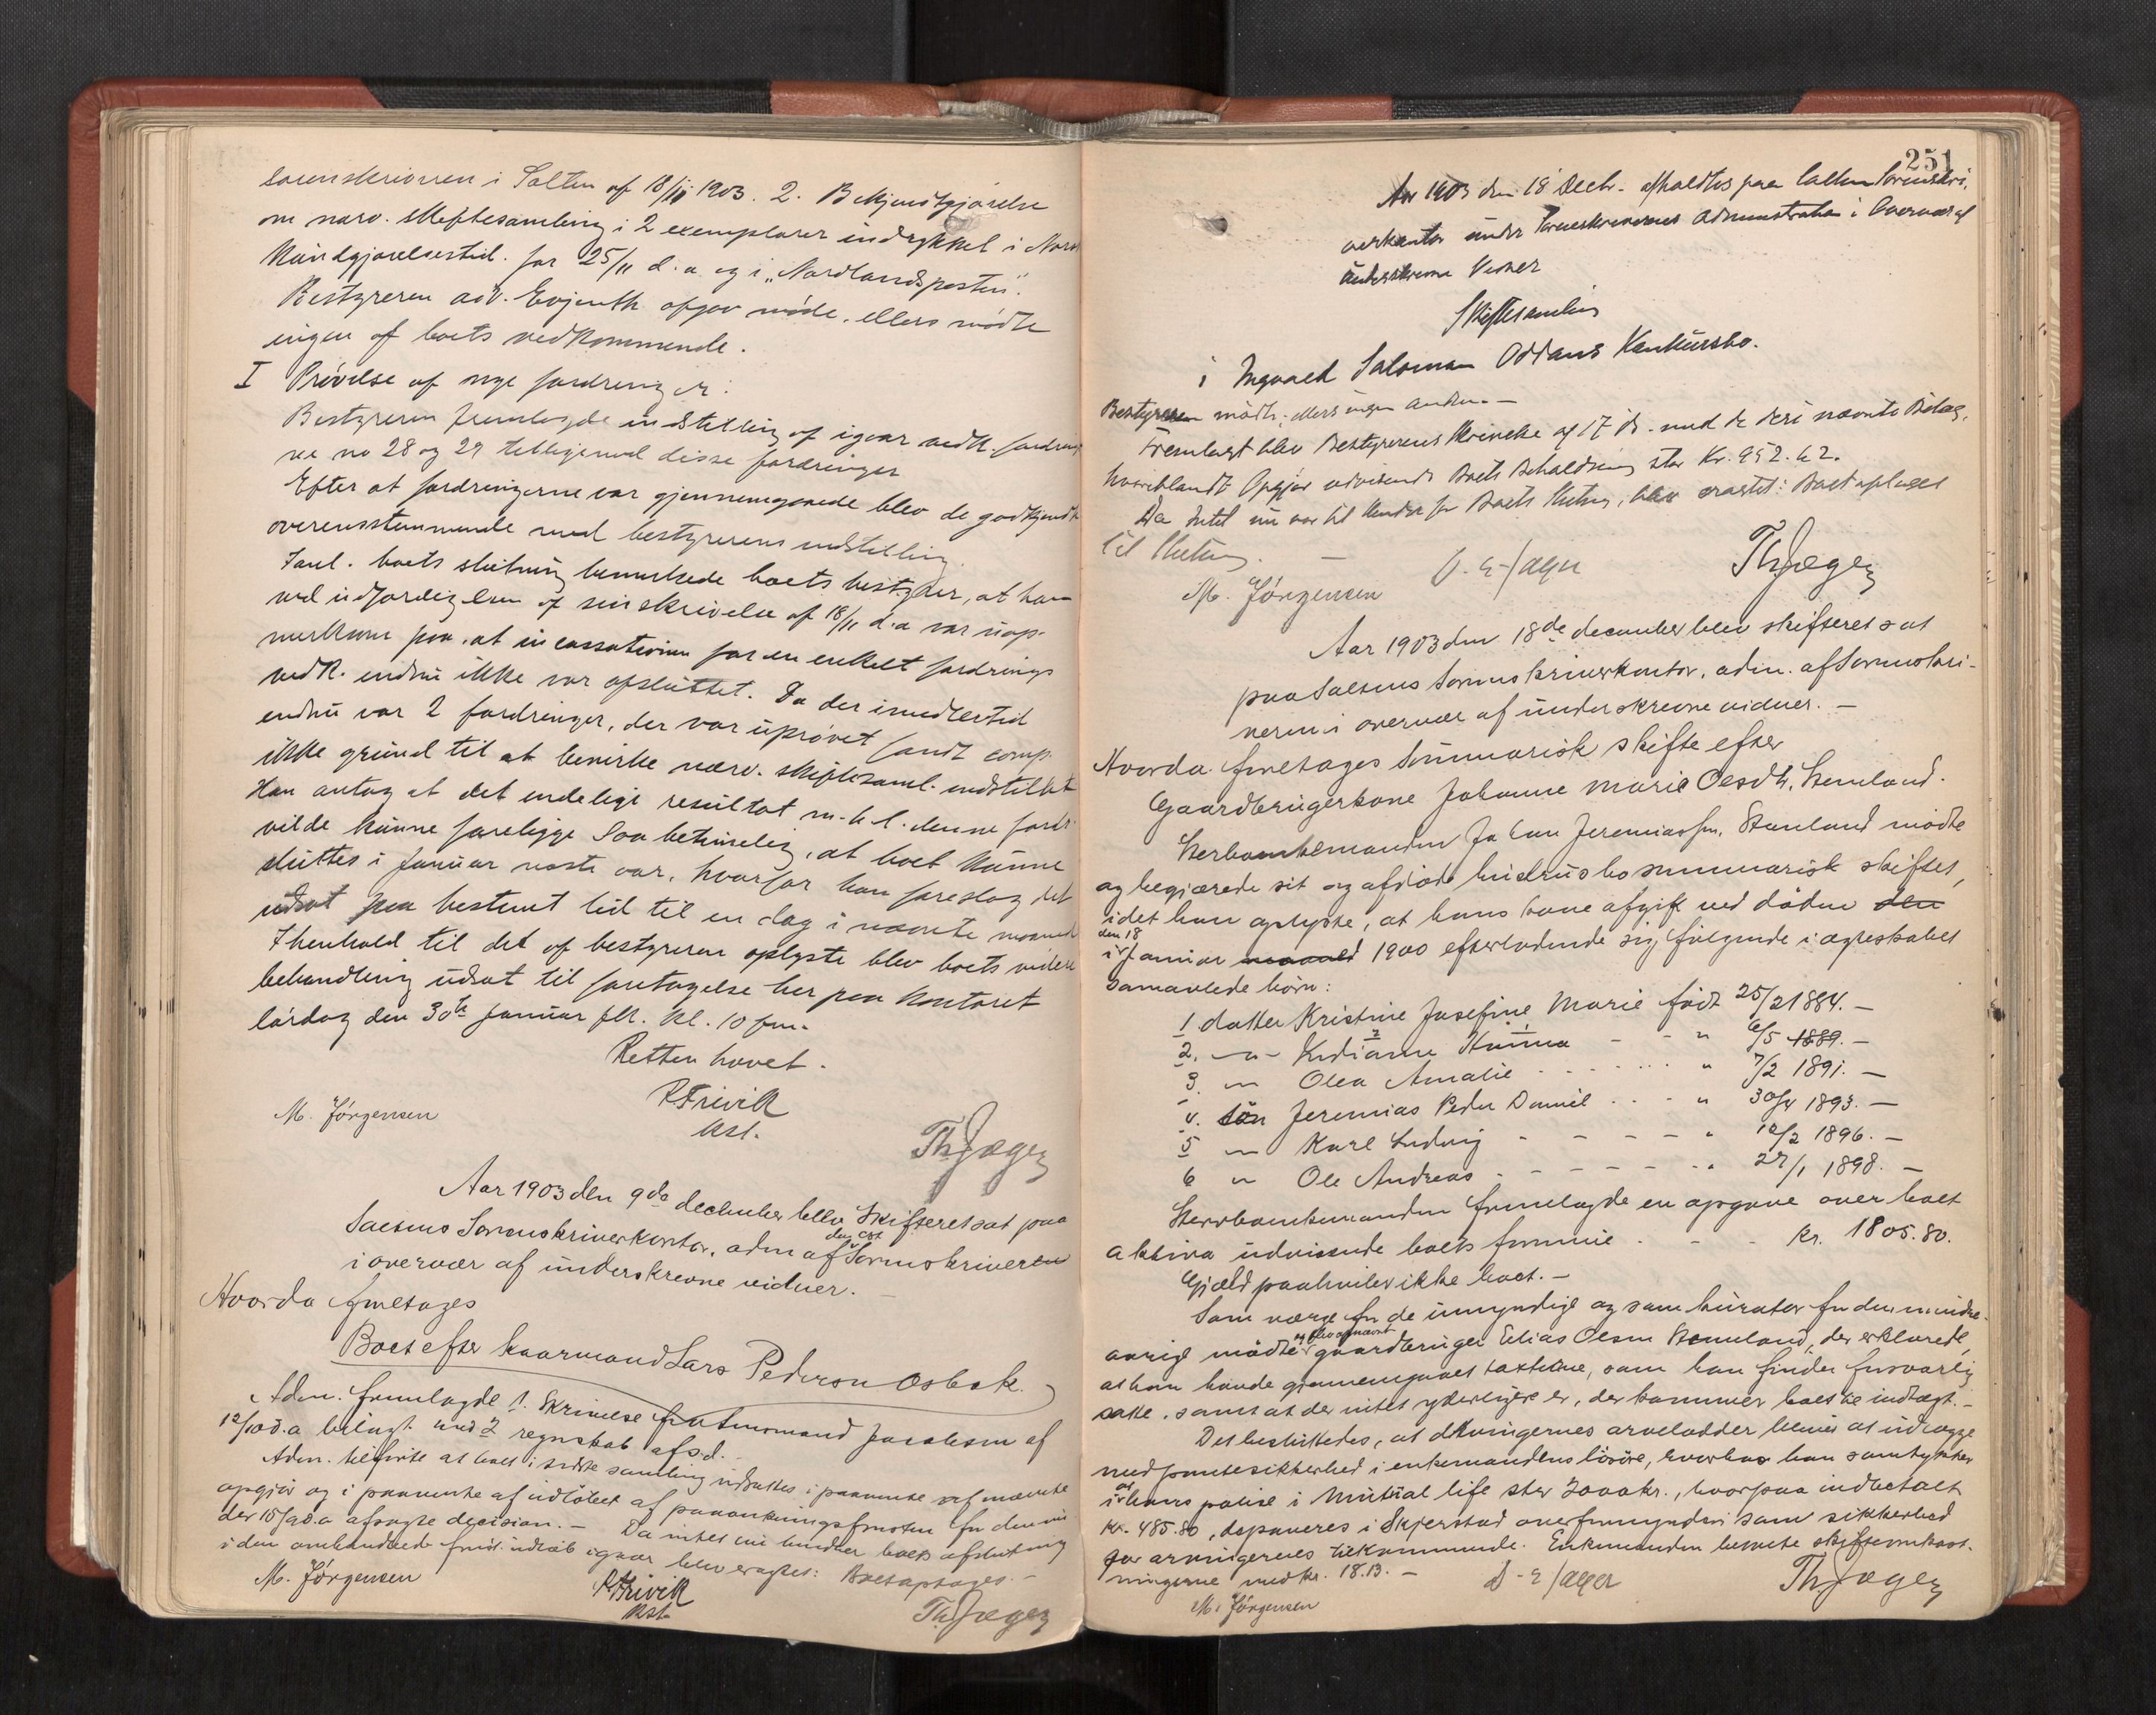 sorenskriveren i Salten af 18/11 1903. 2. Bekjendtgjørelse
om nærv. skiftesamling i 2 exemplarer indrykket i Norsk
Kundgjørelsestid. for 25/11 d.a. og i „Nordlandsposten".
Bestyreren adv. Evjenth opgav møde, ellers mødte
ingen af boets vedkommende.
I Prøvelse af nye fordringer:
Bestyreren fremlagde indstilling af igaar vedk. fordringe
ne no 28 og 29 tilligemed disse fordringer
Efter at fordringerne var gjennemgaaede blev de godkjendte
overensstemmende med bestyrerens indstilling.
Tanl. boets slutning bemærkede boets bestyrer, at han
ved udfærdigelsen af sin skrivelse af 18/11 d.a var uop-
merksom paa, at incassationen for en enkelt fordrings
vedk. endnu ikke var afsluttet. Da der imedlertid
endnu var 2 fordringer, der var uprøvet fandt comp.
ikke grund til at bevirke nærv. skiftesaml. indstillet
Han antog at det endelige resultat m.h.t. denne fordr.
vilde kunne foreligge saa betimelig, at boet kunne
sluttes i Januar næste aar, hvorfor han foreslog det
udsat paa bestemt tid til en dag i nævnte maaned
I henhold til det af bestyreren oplyste blev boets videre
behandling udsat til foretagelse her paa kontoret
lørdag den 30te Januar flk. kl. 10 fm.
Retten hævet.
M. Jørgensen
R Frivik
kst.
Th Jæger
Aar 1903 den 9de december blev Skifteret sat paa
Saltens Sorenskriverkontor, adm af den cst. Sorenskriveren
i overvær af underskrevne vidner.
Hvorda foretages
Boet efter kaarmand Lars Pederson Osbak.
Adm. fremlagde 1. Skrivelse fra Lensmand Jacobsen af
12/10 d.a bilagt med 2 regnskab afs.d.
Adm. tilførte at boet i sidste samling udsattes i paavente af nævnte
opgjør og i paavente af udløbet af paaankningsfristen for den
der 15/9 d.a afsagte decision. — Da intet nu hindrer boets afslutning
i den omhandlede frist udløb igaar blev eragtet: Boet optages. —
M. Jørgensen
R Frivik
kst.
Th Jæger
251
Aar 1903 den 18 Decbr. afholdtes paa Salten Sorenskri-
verkontor under Sorenskriverens Administration i Overvær af
underskrevne Vidner
Skiftesamling
i Ingvald Saloman Oddans Konkursbo.
Bestyreren mødte, ellers ingen Anden. —
Fremlagt blev Bestyrerens Skrivelse af 17 ds. med de deri nævnte Bilag,
hvoriblandt Opgjør udvisende Boets Behaldning stor Kr. 952.62.
Da Intet nu var til Hinder for Boets Slutning, blev eragtet: Boet optages
til Slutning. —
M. Jørgensen
Th Jæger
Aar 1903 den 18de december blev skifteret sat
paa Saltens Sorenskriverkontor, adm. af Sorenskri-
veren i overvær af underskrevne vidner. —
Hvorda foretages summarisk skifte efter
Gaardbrugerkone Johanne Marie Olesdtr. Stemland.
Sterboenkemanden Johan Jeremiassen, Stemland mødte
og begjærede sit og afdøde hustrus bo summarisk skiftet,
idet han oplyste, at hans kone afgik ved døden den
den 18
i Januar maaned 1900 efterladende sig følgende i ægteskabet
samavlede børn:
1 datter Kristine Josefine Marie født 25/2 1884. —
2. —"— Lidianne Hanna - - " 6/5 1889. —
3. — " Olea Amalie - - - - " 7/2 1891. —
4. søn Jeremias Peder Daniel - - " 30/4 1893. —
5 — Karl Ludvig - - - - " 12/2 1896. —
6 " Ole Andreas - - - - - " 27/1 1898. —
Sterboenkemanden fremlagde en opgave over boets
aktiva udvisende boets formue - - - kr. 1805.80.
Gjæld paahviler ikke boet. —
Som værge for de umyndige og som kurator for den mindre-
aarige mødte og blev opnævnt gaardbruger Elias Olsen Stemland, der erklærede
at han havde gjennemgaaet taxterne, som han finder forsvarlig
satte, samt at der intet yderligere er, der kommer boet til indtægt. —
Det besluttedes, at arvingernes arvelodder bliver at udlægge
med pantesikkerhed i enkemandens løsøre, hvorhos han samtykker
i at hans polise i Mutual life stor 2000 kr., hvorpaa indbetalt
kr. 485.80, deponeres i Skjerstad overformynderi som sikkerhed
for arvingernes tilkommende. Enkemanden betalte skifteomkost-
ningerne med kr. 18.13. —
M. Jørgensen
Th Jæger